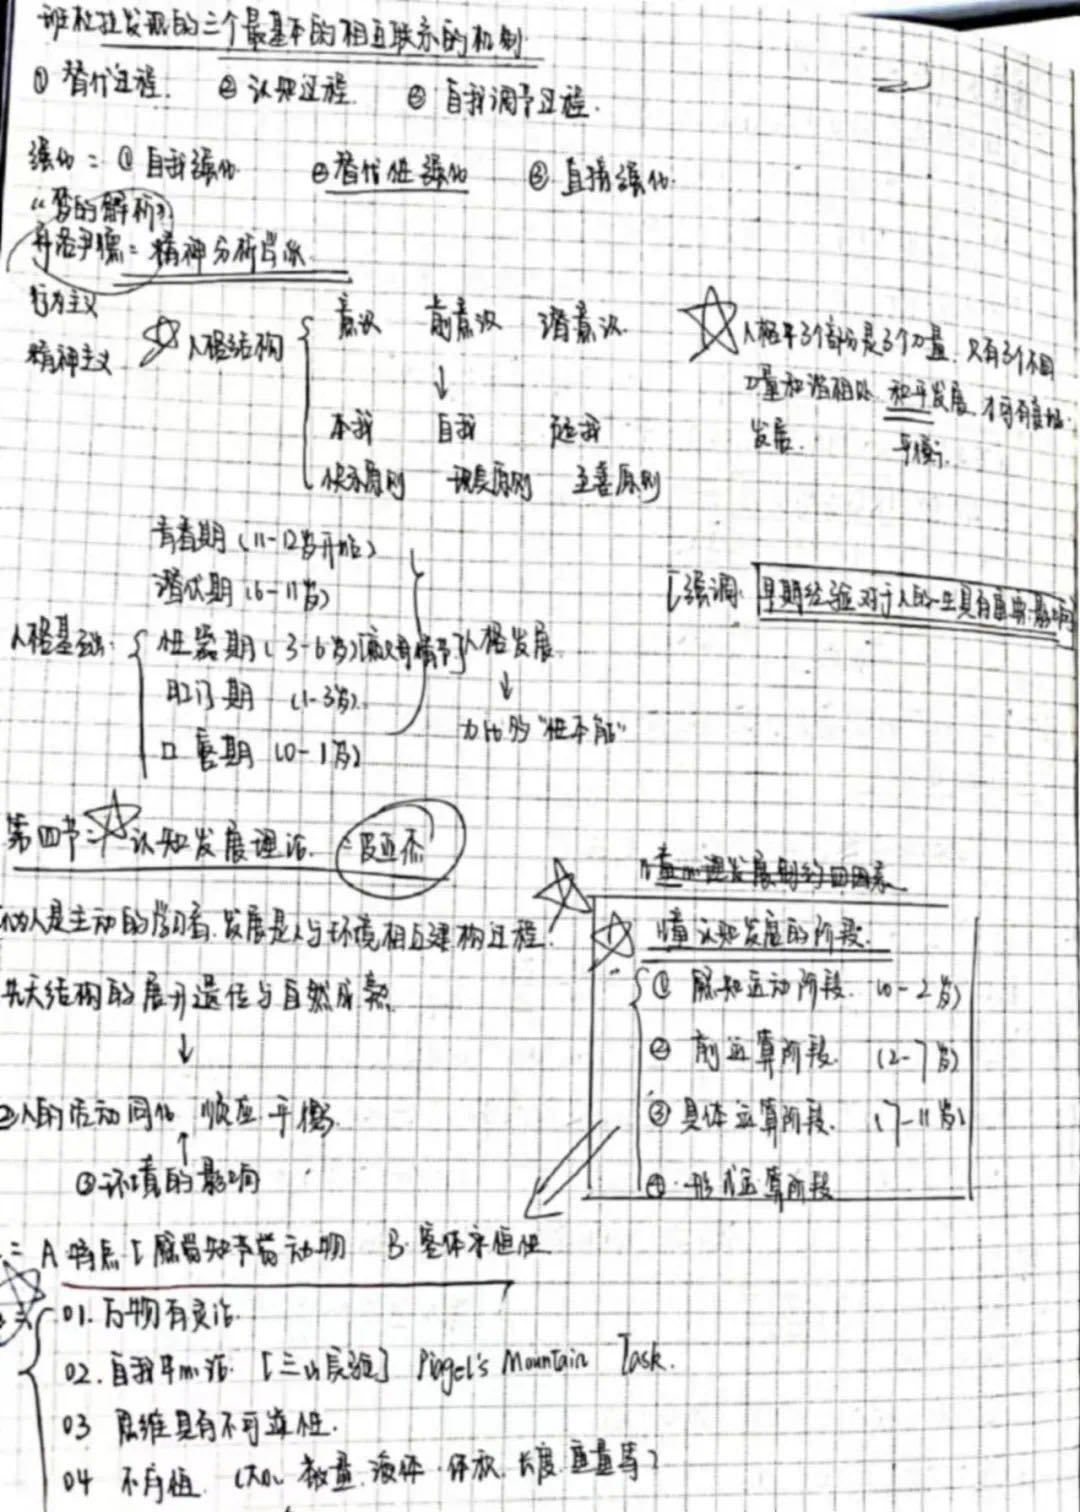 班杜拉发现的三个最基本的相互联系的机制
① 替代过程. ② 认知过程 ③ 自我调节过程.
强化: ① 自我强化 ② 替代性强化 ③ 直接强化.
“梦的解析”
弗洛伊德: 精神分析学派.
行为主义
精神主义
☆人格结构
意识 前意识 潜意识.
↓
本我 自我 超我
快乐原则 现实原则 至善原则
☆人格中3个部分是3个力量. 只有3个不同
力量和谐相处 和平发展 才可有良好
发展. 平衡.
青春期 (11-12岁开始)
潜伏期 (6-11岁)
人格基础: 性器期 (3-6岁) 人格发展.
肛门期 (1-3岁).
口唇期 (0-1岁)
↓
"性本能"
[强调: 早期经验对于人的一生具有重要影响]
第四节: ☆认知发展理论. 皮亚杰
认为人是主动的学习者, 发展是人与环境相互建构过程.
先天结构的展开遗传与自然成熟
↓
②人的活动同化 顺应 平衡.
↑
③环境的影响
儿童心理发展制约四因素
☆ 儿童认知发展的阶段.
① 感知运动阶段. (0-2岁)
② 前运算阶段. (2-7岁)
③ 具体运算阶段. (7-11岁)
④ 形式运算阶段
A 特点 B. 客体永恒性
01. 万物有灵论.
02. 自我中心论. [三山实验] Piaget's Mountain Task.
03 思维具有不可逆性.
04 不守恒. 数量. 液体. 体积. 长度. 重量等)